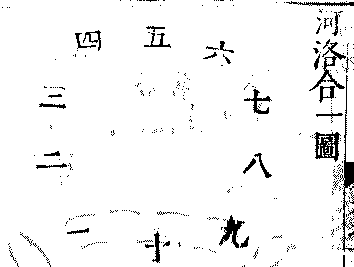 河洛合一圖
四 五 六
三 七
二 八
一 十 九